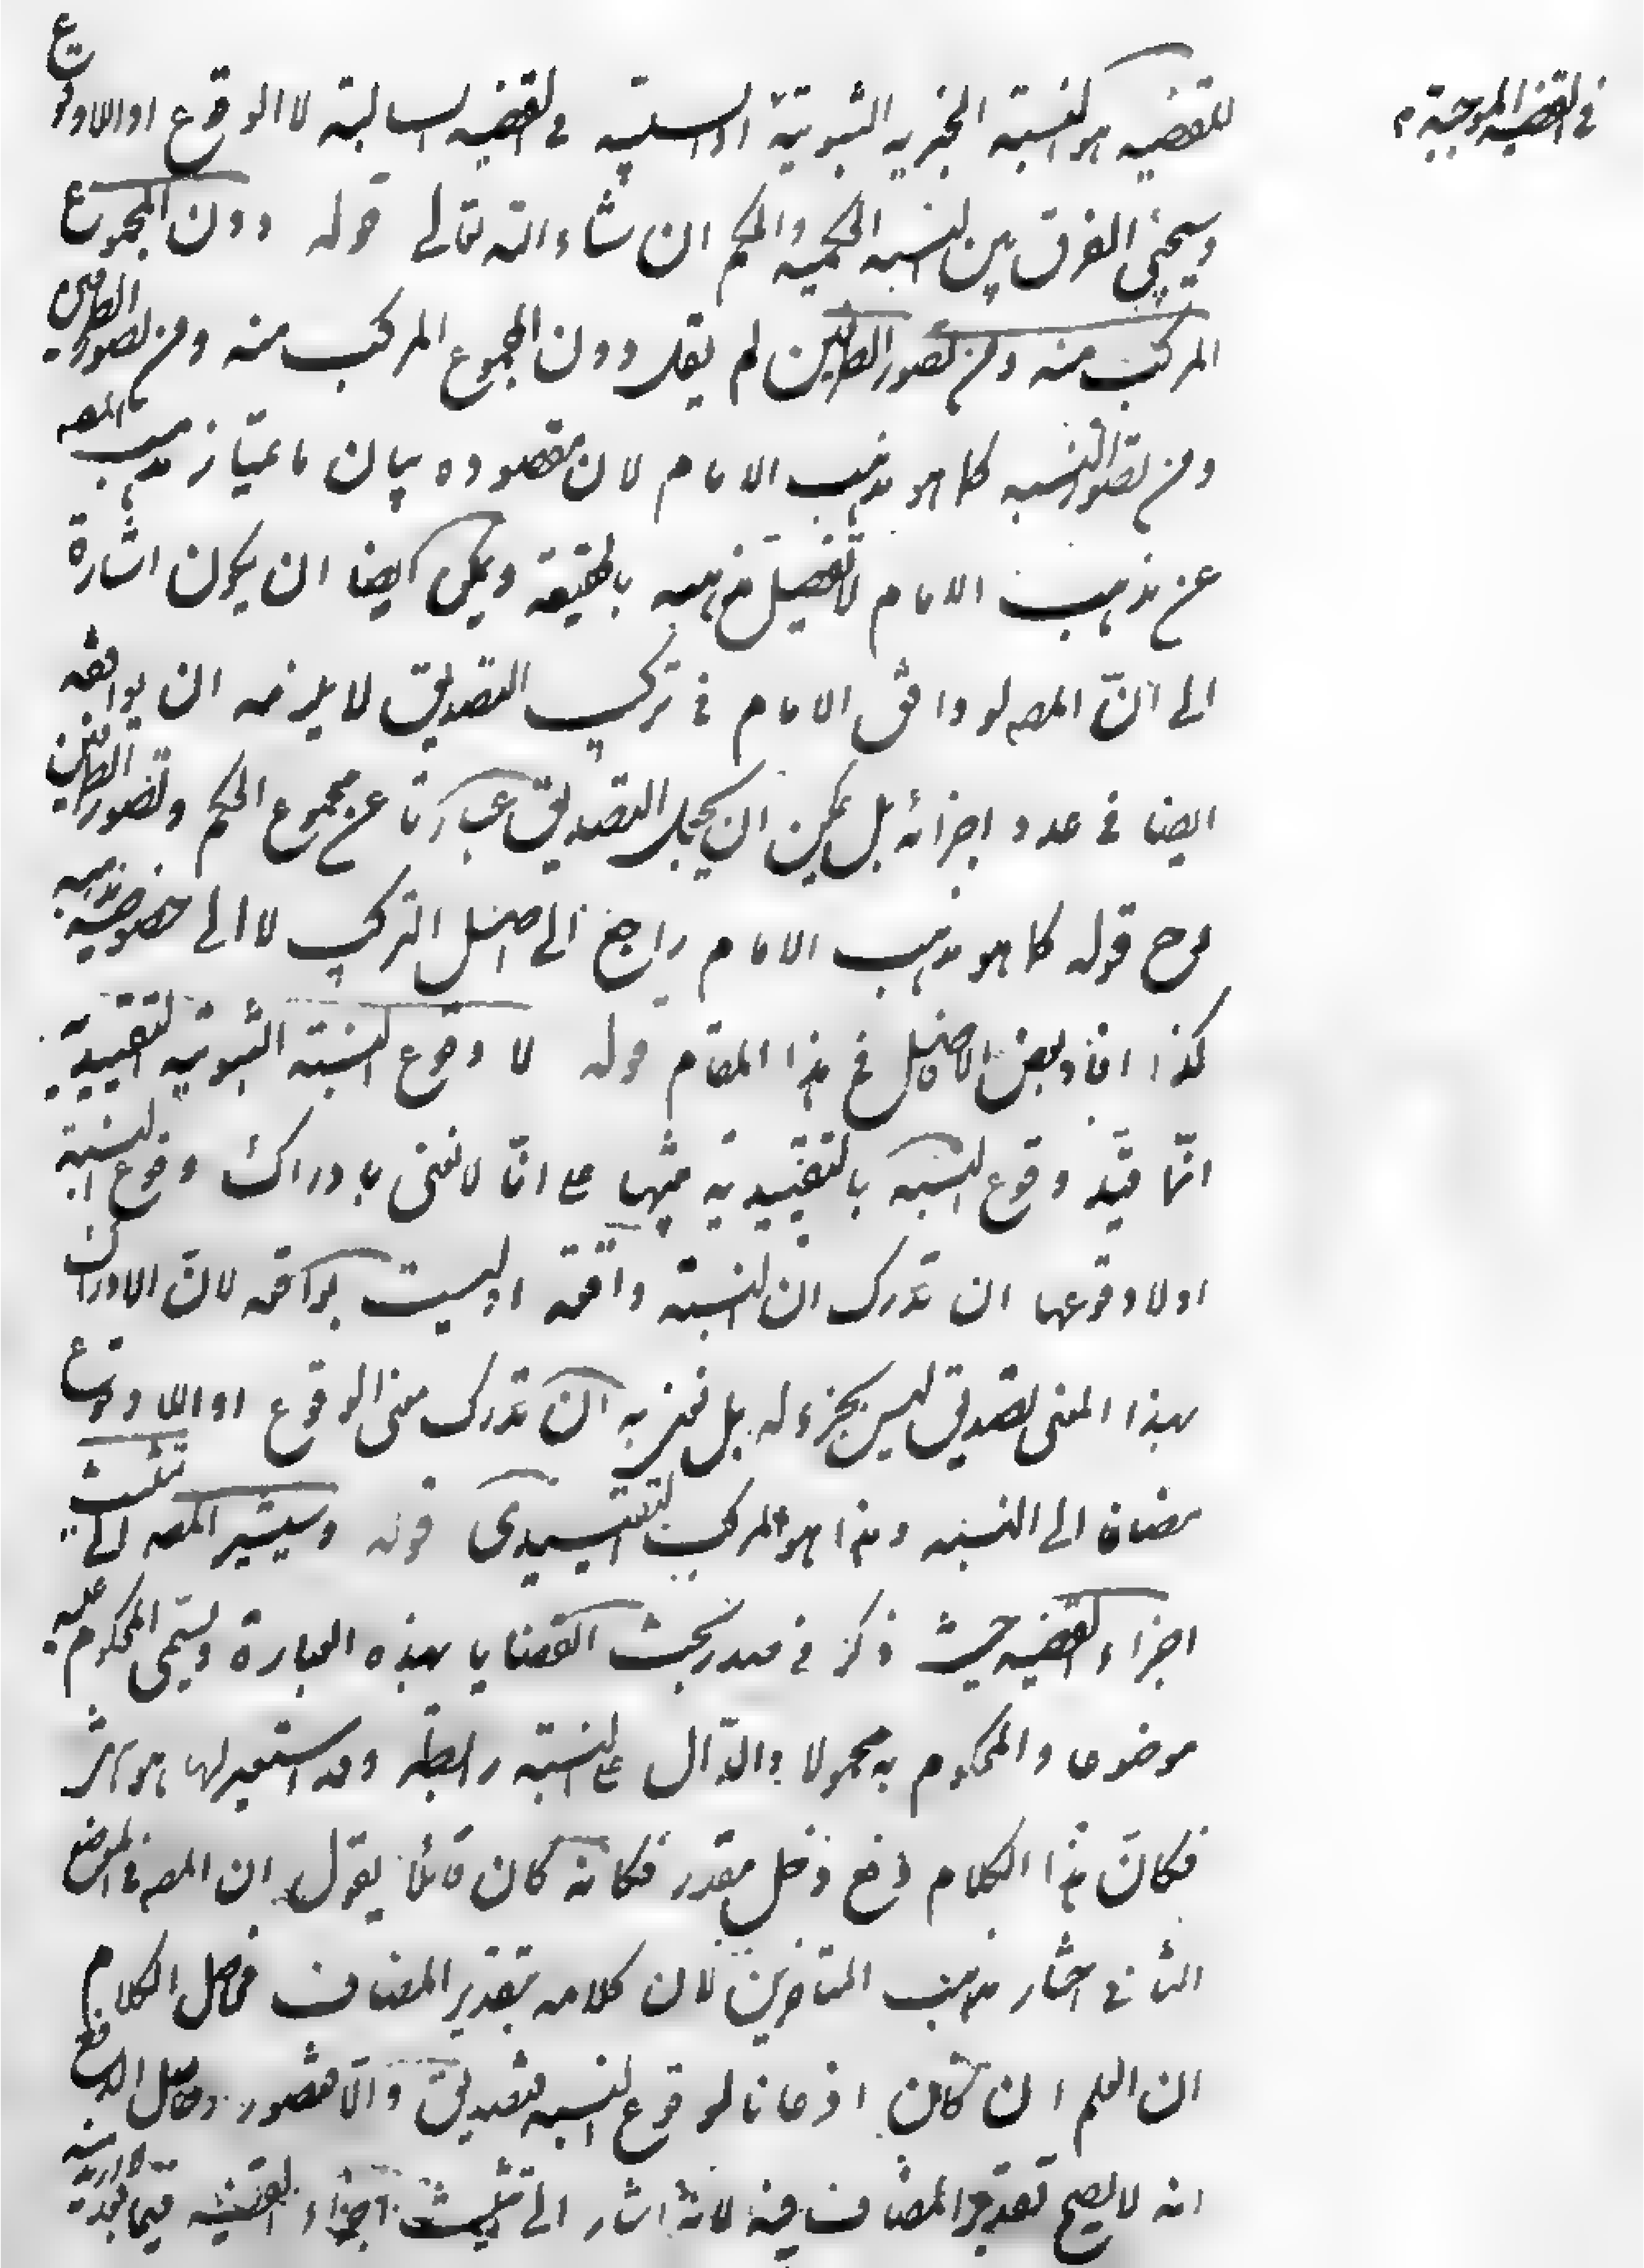 في القضية الموجبة م
للقضيه هو النسبة الخبريه الثبوتية او السلبيه في القضيه السالبة لا الوقوع او اللاوقوع
وسيجئ الفرق بين النسبه الحكميه والحكم ان شاء الله تعالى قوله دون المجموع
المركب منه ومن تصور الطرفين لم يقل دون المجموع المركب منه ومن تصور الطرفين
ومن تصور النسبه كما هو مذهب الامام لان مقصوده بيان ما يمتاز مذهب المصه
عن مذهب الامام لا تفصيل مذهبه بالحقيقة ويمكن ايضا ان يكون اشارة
الى انّ المصه لو وافق الامام في تركيب التصديق لا يلزمه ان يوافقه
ايضا في عدد اجزائه بل يمكن ان يجعل التصديق عبارتا عن مجموع الحكم وتصور الطرفين
وح قوله كما هو مذهب الامام راجع الى اصل التركيب لا الى خصوصية مذهبه
كذا افاد بعض الافاضل في هذا المقام قوله لا وقوع النسبة الثبوتيه التقييدية
انّما قيّد وقوع النسبه بالتقييديه تنبيها ع انّا لا نعنى بادراك وقوع النسبة
او لا وقوعها ان تدرك ان النسبة واقعة او ليست بواقعه لان الادراك
بهذا المعنى تصديق ليس بجزء له بل نعني به ان تدرك معنى الوقوع او اللاوقوع
مضاف الى النسبه وهذا هو المركب التقييدى قوله وسيشير المصه الى تثليث
اجزاء القضيه حيث ذكر في صدر بحث القضايا بهذه العبارة ويسمى المحكوم عليه
موضوعا والمحكوم به محمولا والدّال ع النسبة رابطة وقد استعير لها هو
فكانّ هذا الكلام دفع دخل مقدر فكانه كان قائلا يقول ان المصه في الموضع
الثاني اختار مذهب المتأخرين لان كلامه بتقدير المضاف فحاصل الكلام
ان العلم ان كان اذعانا لوقوع النسبه فتصديق والّا فتصور وحاصل الدفع
انه لا يصح تقدير المضاف فيه لانه اشار الى تثليث اجزاء القضيه فيما بعد